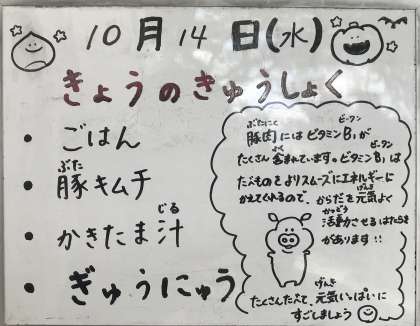 10月14日(水)
きょうのきゅうしょく
・ごはん
ぶた
・豚キムチ
じる
・かきたま汁
・ぎゅうにゅう
ぶたにく ビーワン
豚肉にはビタミンB1が
ビーワン
たくさん含まれています。ビタミンB1は
たべものをよりスムーズにエネルギーに
げんき
かえてくれるので、からだを元気よく
かつどう
活動させるはたらき
があります!!
げんき
たくさんたべて、元気いっぱいに
すごしましょう